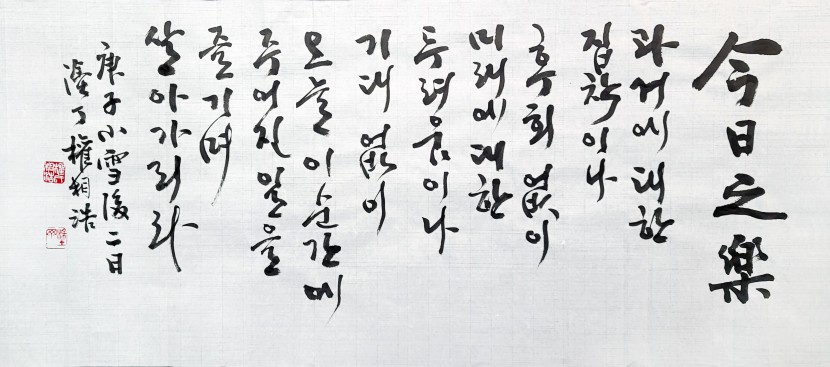 今日之樂
과거에 대한
집착이나
후회 없이
미래에 대한
두려움이나
기대 없이
오늘 이 순간에
주어진 일을
즐기며
살아가리라
庚子小雪後二日
濠丁 權相浩